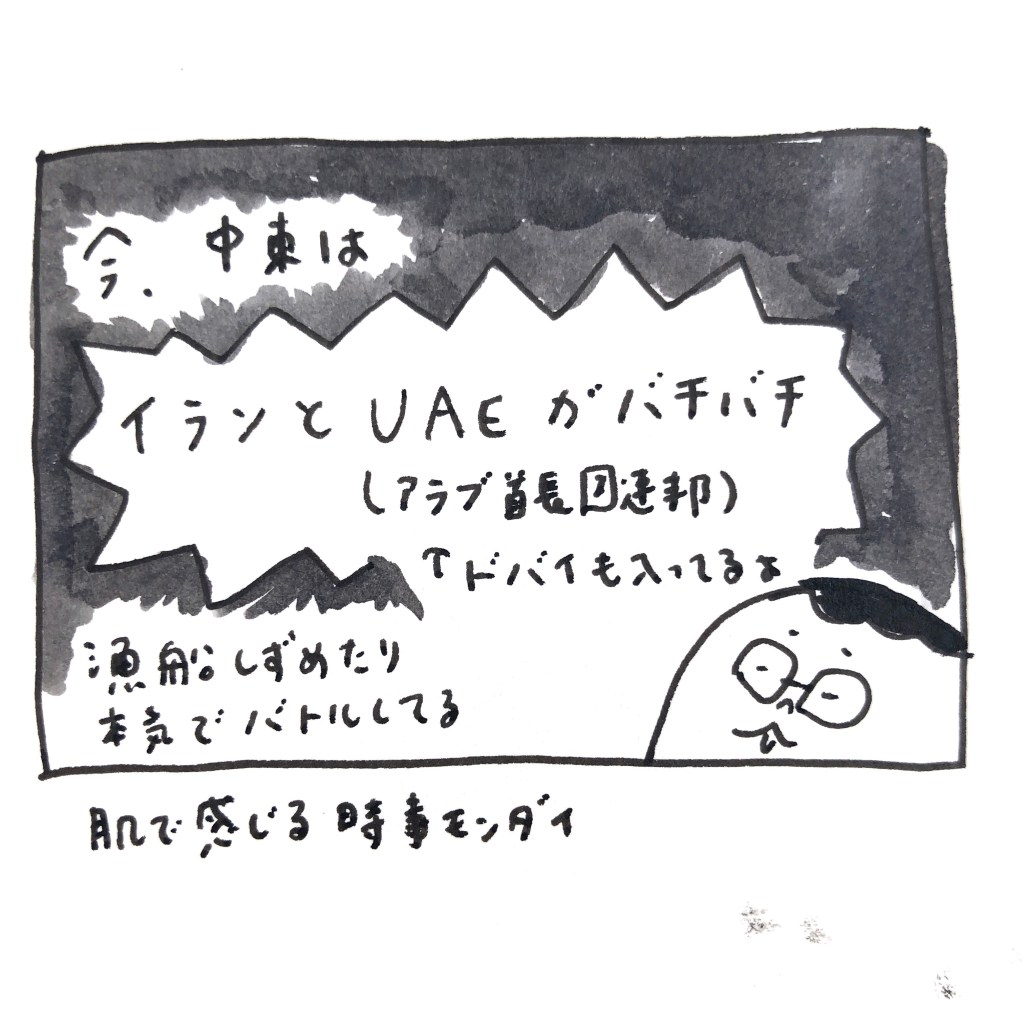 今、中東は
イランとUAEがバチバチ
(アラブ首長国連邦)
↑ドバイも入ってるよ
漁船しずめたり
本気でバトルしてる
肌で感じる時事モンダイ